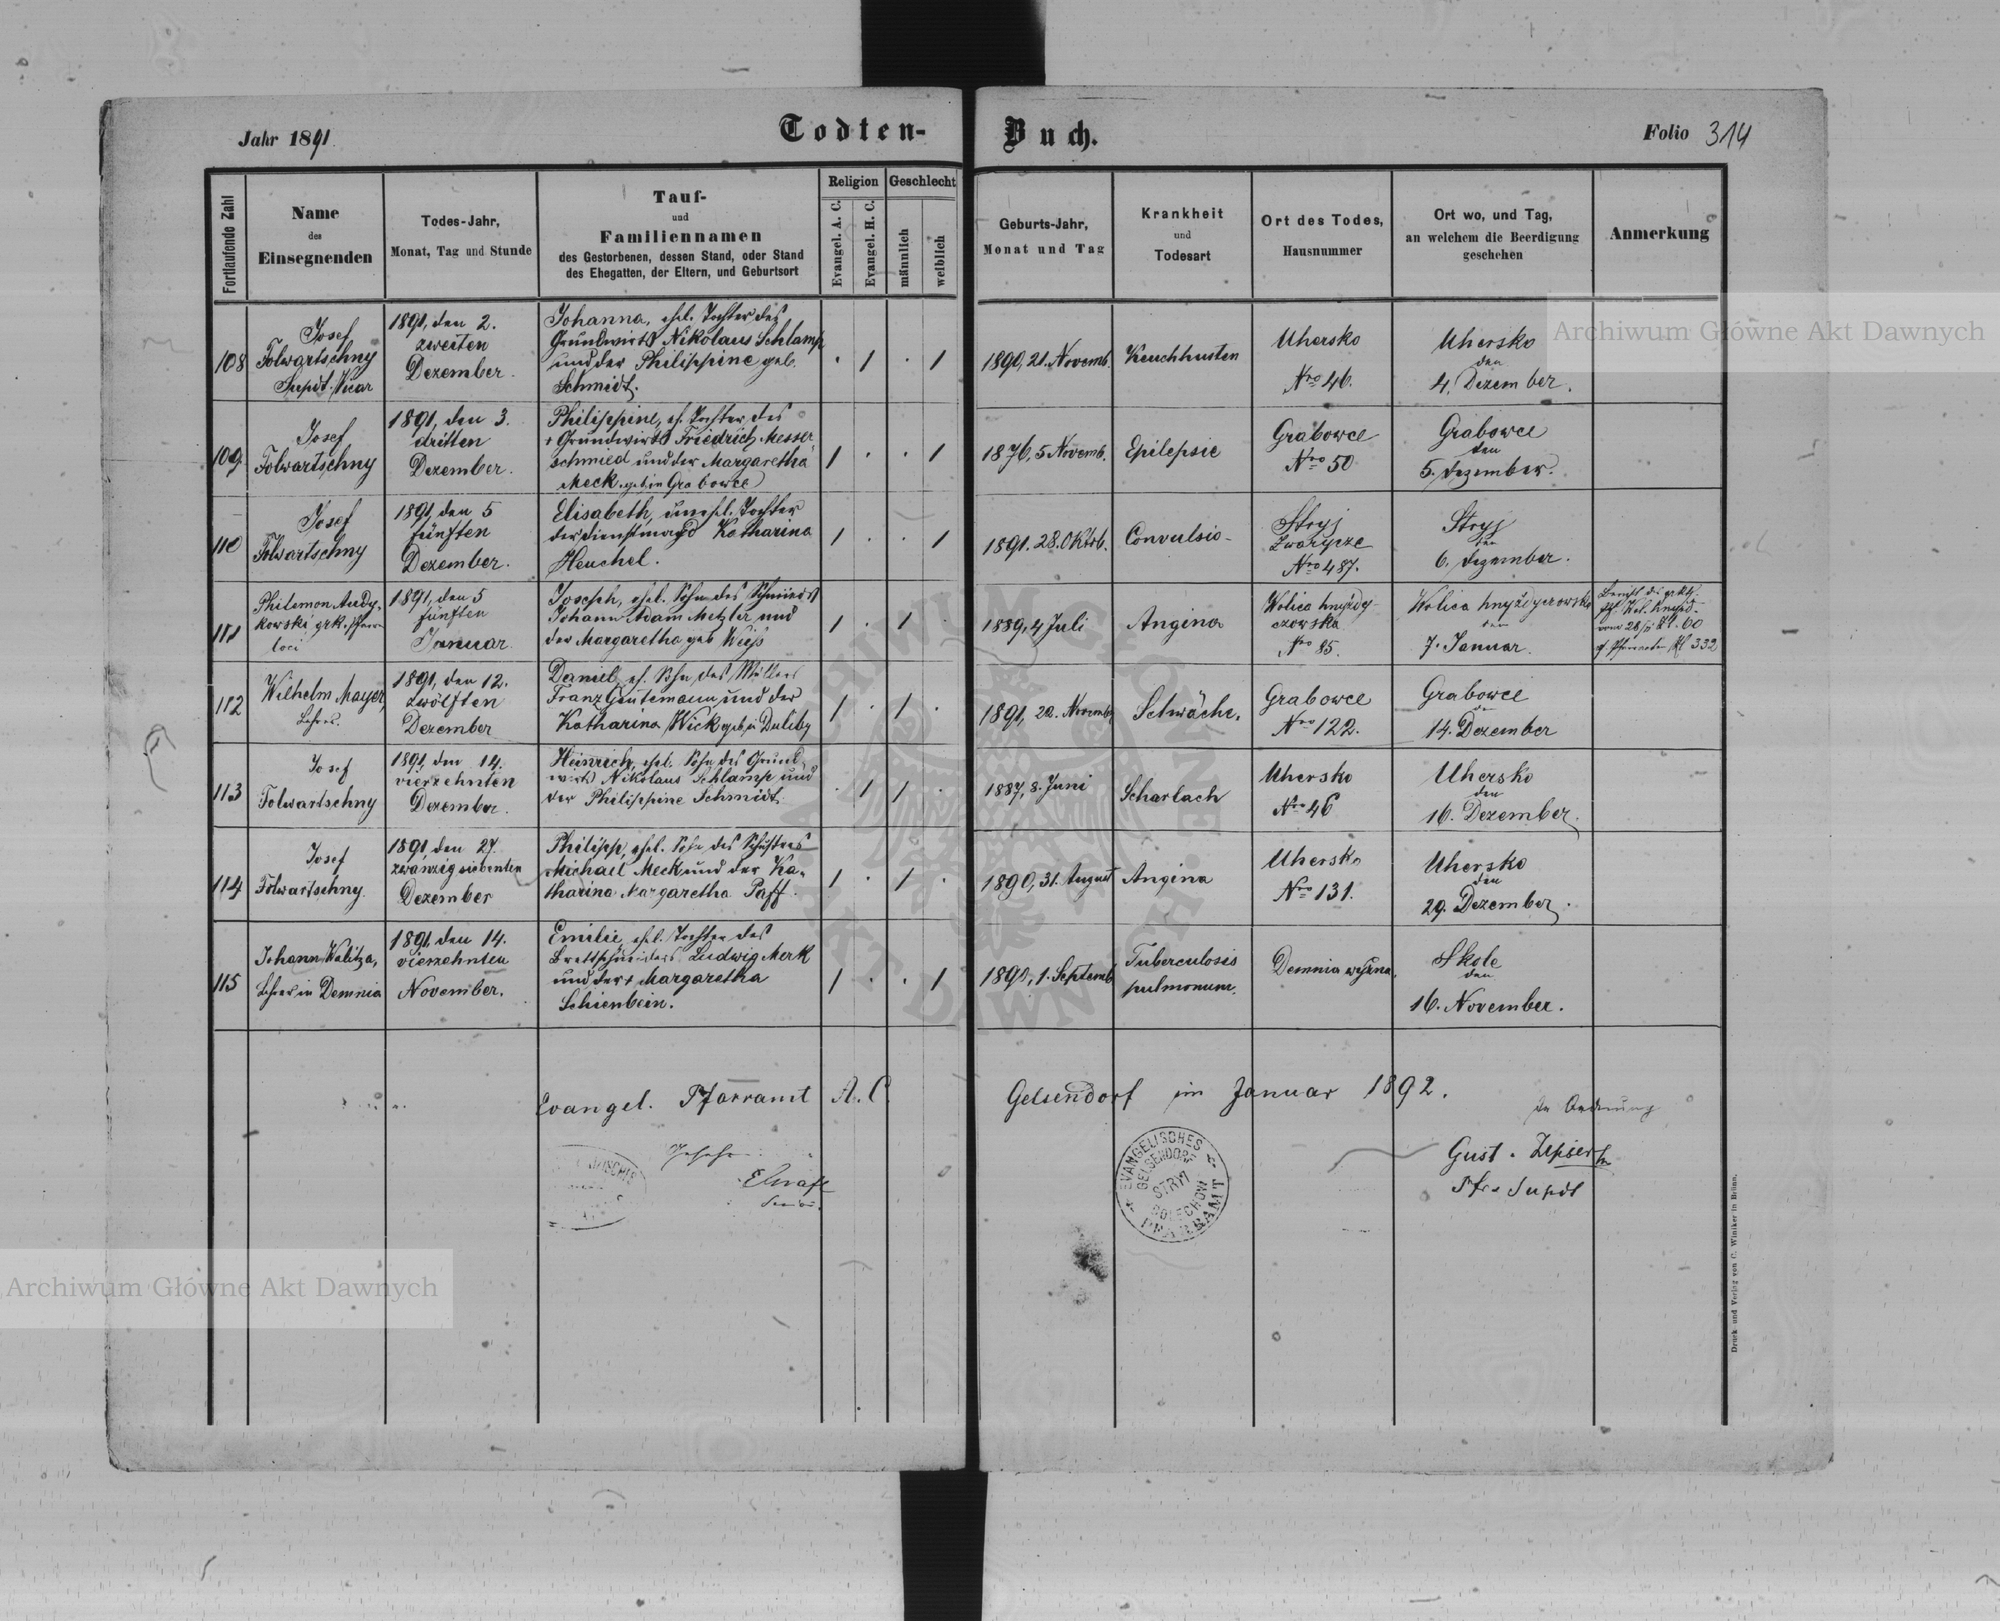 Jahr 1891.
Todten-Buch.
Folio 314
Fortlaufende Zahl
Name
des
Einsegnenden
Todes-Jahr,
Monat, Tag und Stunde
Tauf-
und
Familiennamen
des Gestorbenen, dessen Stand, oder Stand
des Ehegatten, der Eltern, und Geburtsort
Religion
Evangel. A. C.
Evangel. H. C.
Geschlecht
männlich
weiblich
Geburts-Jahr,
Monat und Tag
Krankheit
und
Todesart
Ort des Todes,
Hausnummer
Ort wo, und Tag,
an welchem die Beerdigung
geschehen
Anmerkung
108
Josef
Folwartschny
Supdt. Vicar
1891, den 2.
zweiten
Dezember.
Johanna, ehel. Tochter des
Grundwirts Nikolaus Schlamp
und der Philippine geb.
Schmidt.
. 1 . 1
1890, 21. Novemb.
Keuchhusten
Uhersko
Nro 46.
Uhersko
den
4. Dezember.
109
Josef
Folwartschny
1891, den 3.
dritten
Dezember.
Philippine, eh. Tochter des
+ Grundwirts Friedrich Messer
schmied und der Margaretha
Meck. geb. in Grabowce
1 . . 1
1876, 5 Novemb.
Epilepsie
Grabowce
Nro 50
Grabowce
den
5. Dezember.
110
Josef
Folwartschny
1891, den 5
fünften
Dezember.
Elisabeth, unehl. Tochter
der Dienstmagd Katharina
Heuchel.
1 . . 1
1891. 28. Oktob.
Convulsio-
Stryj
Zwarycze
Nro 487.
Stryj
den
6. Dezember.
111
Philemon Andy-
kowski grk. Pfarr
loci
1891, den 5
fünften
Januar.
Joseph, ehel. Sohn des Schmieds
Johann Adam Metzler und
der Margaretha geb Weiß
1 . 1 .
1889, 4 Juli
Angina
Wolica hnyzdy-
czowska
Nro 85.
Wolica hnyzdyczowska
den
7. Januar.
60
332
112
Wilhelm Mayer,
Lehrer.
1891, den 12.
zwölften
Dezember
Daniel, eh. Sohn des Müllers
Franz Gutemann und der
Katharina Wick geb. in Duliby
1 . 1 .
1891, 22. Novemb.
Schwäche.
Grabowce
Nro 122.
Grabowce
den
14. Dezember
113
Josef
Folwartschny
1891, den 14.
vierzehnten
Dezember.
Heinrich, ehel. Sohn des Grund-
wirts Nikolaus Schlamp und
der Philippine Schmidt.
. 1 1 .
1887, 8. Juni
Scharlach
Uhersko
Nro 46
Uhersko
den
16. Dezember.
114
Josef
Folwartschny
1891, den 27.
zwanzig siebenten
Dezember
Philipp, ehel. Sohn des Schusters
Michael Meck und der Ka-
tharina Margaretha Paff.
1 . 1 .
1890, 31. August
Angina
Uhersko
Nro 131.
Uhersko
den
29. Dezember.
115
Johann Walitza,
Lehrer in Demnia
1891, den 14.
vierzehnten
November.
Emilie, ehel. Tochter des
Brettschneiders Ludwig Merk
und der + Margaretha
Schienbein.
1 . . 1
1890, 1. Septemb.
Tuberculosis
pulmonum.
Demnia wyżna.
Skole
den
16. November.
Evangel. Pfarramt A. C. Gelsendorf im Januar 1892.
Gesehen
In Ordnung
Gust. Zipser
Pfr. Supdt
EVANGELISCHES
GELSENDORF
STRYI
BOLECHOW
PFARRAMT
Druck und Verlag von C. Winiker in Brünn.
Archiwum Główne Akt Dawnych
Archiwum Główne Akt Dawnych
ARCHIWUM GŁÓWNE
AKT DAWNYCH